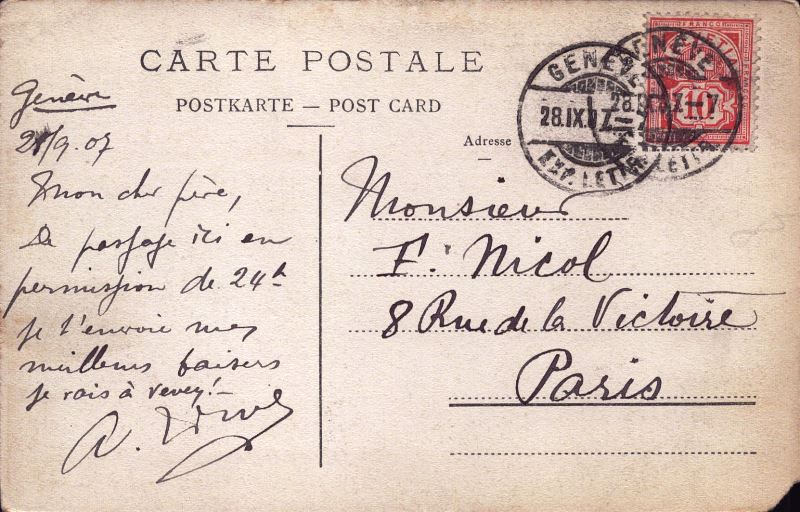 CARTE POSTALE
POSTKARTE — POST CARD
Adresse
Genève
28/9.07
Mon cher père,
De passage ici en
permission de 24h
je t'envoie mes
meilleurs baisers
je vais à Vevey!-
A.
Monsieur
F. Nicol
8 Rue de la Victoire
Paris
GENÈVE
28.IX.07
EXP. LETTR.
GENÈVE
28.IX.07.—7
LETTR
FRANCO
10